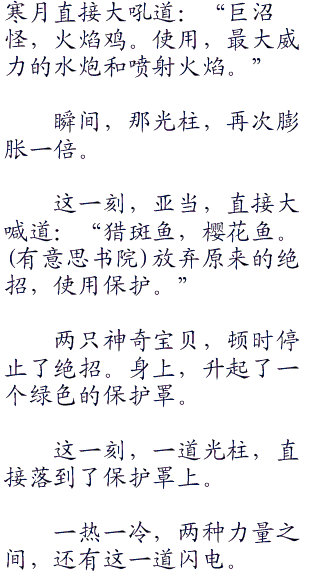 寒月直接大吼道：“巨沼
怪，火焰鸡。使用，最大威
力的水炮和喷射火焰。”
瞬间，那光柱，再次膨
胀一倍。
这一刻，亚当，直接大
喊道：“猎斑鱼，樱花鱼。
(有意思书院)放弃原来的绝
招，使用保护。”
两只神奇宝贝，顿时停
止了绝招。身上，升起了一
个绿色的保护罩。
这一刻，一道光柱，直
接落到了保护罩上。
一热一冷，两种力量之
间，还有这一道闪电。